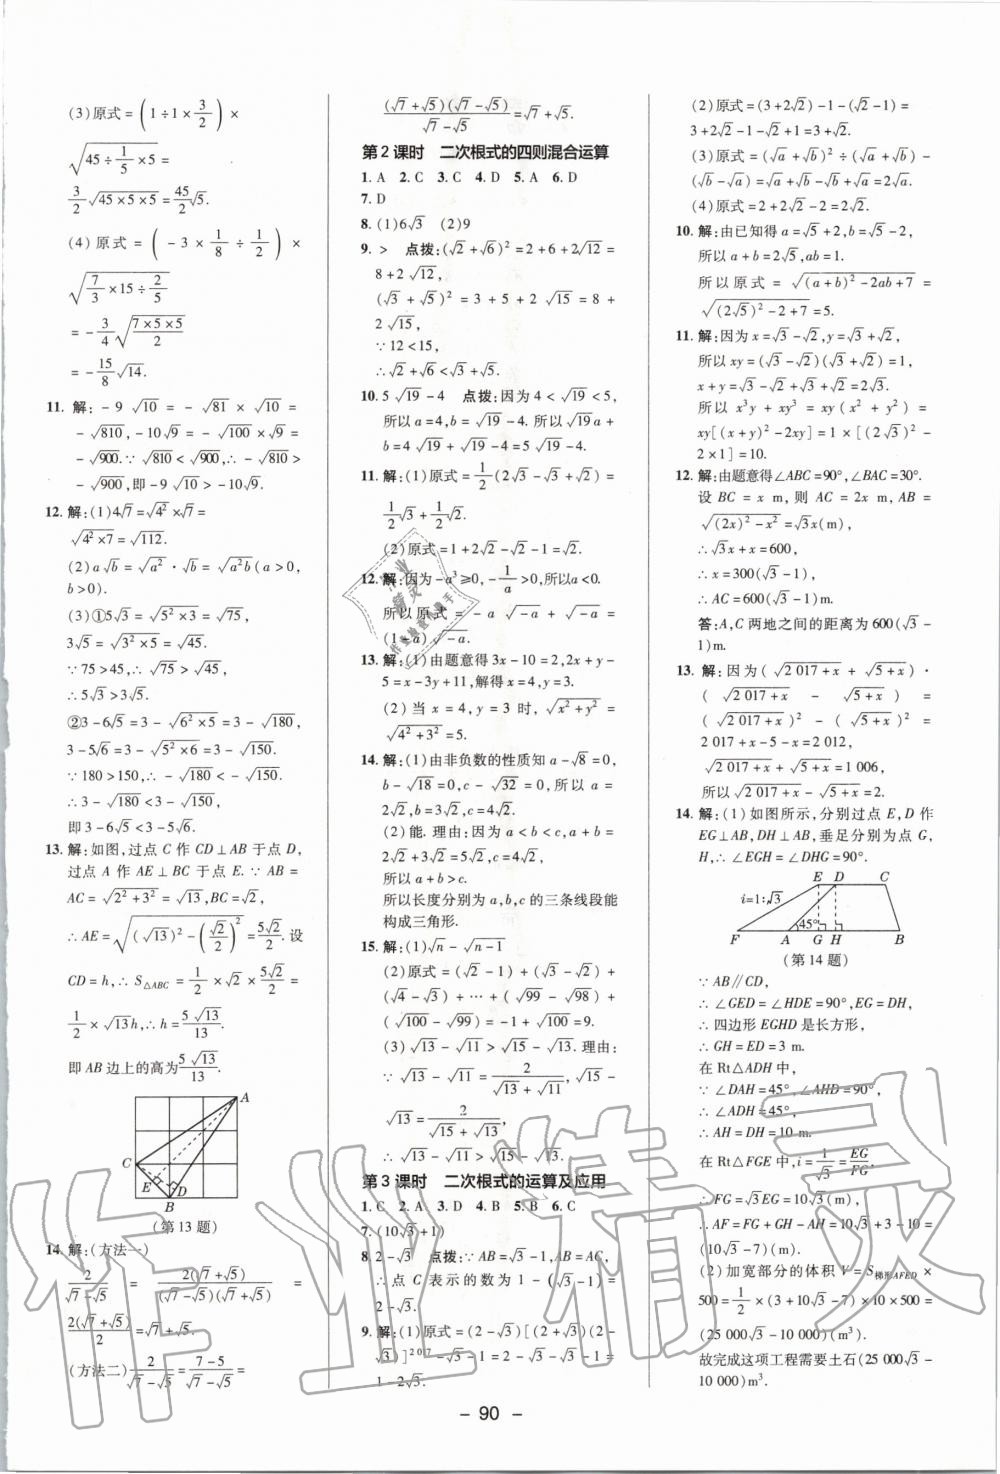 (3)原式=(1÷1×3/2)×
√(45÷1/5×5)=
3/2√(45×5×5)=45/2√5.
(4)原式=(-3×1/8÷1/2)×
√(7/3×15÷2/5)
=-3/4√(7×5×5/2)
=-15/8√14.
11. 解:-9√10=-√81×√10=
-√810,-10√9=-√100×√9=
-√900.∵√810<√900,∴-√810>
-√900,即-9√10>-10√9.
12. 解:(1)4√7=√4²×√7=
√(4²×7)=√112.
(2)a√b=√a²·√b=√(a²b)(a>0,
b>0).
(3)①5√3=√(5²×3)=√75,
3√5=√(3²×5)=√45.
∵75>45,∴√75>√45.
∴5√3>3√5.
②3-6√5=3-√(6²×5)=3-√180,
3-5√6=3-√(5²×6)=3-√150.
∵180>150,∴-√180<-√150.
∴3-√180<3-√150,
即3-6√5<3-5√6.
13. 解:如图,过点C作CD⊥AB于点D,
过点A作AE⊥BC于点E.∵AB=
AC=√(2²+3²)=√13,BC=√2,
∴AE=√((√13)²-(√2/2)²)=5√2/2.设
CD=h,∴S△ABC=1/2×√2×5√2/2=
1/2×√13h,∴h=5√13/13.
即AB边上的高为5√13/13.
A
C
E D
B
(第13题)
14. 解:(方法一)
2/(√7-√5)=2(√7+√5)/((√7-√5)(√7+√5))=
2(√7+√5)/2=√7+√5.
(方法二)2/(√7-√5)=(7-5)/(√7-√5)=
(√7+√5)(√7-√5)/(√7-√5)=√7+√5.
第2课时 二次根式的四则混合运算
1. A 2. C 3. C 4. D 5. A 6. D
7. D
8. (1)6√3 (2)9
9. > 点拨:(√2+√6)²=2+6+2√12=
8+2√12,
(√3+√5)²=3+5+2√15=8+
2√15,
∵12<15,
∴√2+√6<√3+√5.
10. 5√19-4 点拨:因为4<√19<5,
所以a=4,b=√19-4.所以√19a+
b=4√19+√19-4=5√19-4.
11. 解:(1)原式=1/2(2√3-√3+√2)=
1/2√3+1/2√2.
(2)原式=1+2√2-√2-1=√2.
12. 解:因为-a³≥0,-1/a>0,所以a<0.
所以原式=-a√-a+√-a=
(1-a)√-a.
13. 解:(1)由题意得3x-10=2,2x+y-
5=x-3y+11,解得x=4,y=3.
(2)当x=4,y=3时,√(x²+y²)=
√(4²+3²)=5.
14. 解:(1)由非负数的性质知a-√8=0,
b-√18=0,c-√32=0,所以a=
2√2,b=3√2,c=4√2.
(2)能.理由:因为a<b<c,a+b=
2√2+3√2=5√2,c=4√2,
所以a+b>c.
所以长度分别为a,b,c的三条线段能
构成三角形.
15. 解:(1)√n-√(n-1)
(2)原式=(√2-1)+(√3-√2)+
(√4-√3)+…+(√99-√98)+
(√100-√99)=-1+√100=9.
(3)√13-√11>√15-√13.理由:
∵√13-√11=2/(√13+√11),√15-
√13=2/(√15+√13),
∴√13-√11>√15-√13.
第3课时 二次根式的运算及应用
1. C 2. A 3. D 4. B 5. B 6. C
7. (10√3+1)
8. 2-√3 点拨:∵AB=√3-1,AB=AC,
∴点C表示的数为1-(√3-1)=
2-√3.
9. 解:(1)原式=(2-√3)[(2+√3)(2-
√3)]²⁰¹⁷-√3-1=2-√3-√3-1=
1-2√3.
(2)原式=(3+2√2)-1-(√2-1)=
3+2√2-1-√2+1=3+√2.
(3)原式=(√a+√b)²÷(√a+√b)-
(√b-√a)=√a+√b-√b+√a=2√a.
(4)原式=2+2√2-2=2√2.
10. 解:由已知得a=√5+2,b=√5-2,
所以a+b=2√5,ab=1.
所以原式=√((a+b)²-2ab+7)=
√((2√5)²-2+7)=5.
11. 解:因为x=√3-√2,y=√3+√2,
所以xy=(√3-√2)(√3+√2)=1,
x+y=√3-√2+√3+√2=2√3.
所以x³y+xy³=xy(x²+y²)=
xy[(x+y)²-2xy]=1×[(2√3)²-
2×1]=10.
12. 解:由题意得∠ABC=90°,∠BAC=30°.
设BC=x m,则AC=2x m,AB=
√((2x)²-x²)=√3x(m),
∴√3x+x=600,
∴x=300(√3-1),
∴AC=600(√3-1).
答:A,C两地之间的距离为600(√3-
1)m.
13. 解:因为(√(2 017+x)+√(5+x))·
(√(2 017+x)-√(5+x))=
(√(2 017+x))²-(√(5+x))²=
2 017+x-5-x=2 012,
√(2 017+x)+√(5+x)=1 006,
所以√(2 017+x)-√(5+x)=2.
14. 解:(1)如图所示,分别过点E,D作
EG⊥AB,DH⊥AB,垂足分别为点G,
H,∴∠EGH=∠DHG=90°.
E D C
i=1:√3
45°
F A G H B
(第14题)
∵AB∥CD,
∴∠GED=∠HDE=90°,EG=DH,
∴四边形EGHD是长方形,
∴GH=ED=3 m.
在Rt△ADH中,
∵∠DAH=45°,∠AHD=90°,
∴∠ADH=45°,
∴AH=DH=10 m.
在Rt△FGE中,i=1/√3=EG/FG,
∴FG=√3EG=10√3(m),
∴AF=FG+GH-AH=10√3+3-
10=(10√3-7)(m).
(2)加宽部分的体积V=S梯形AFED×
500=1/2×(3+10√3-7)×10×500=
(25 000√3-10 000)(m³).
故完成这项工程需要土石(25 000√3-
10 000)m³.
- 90 -
作业精灵